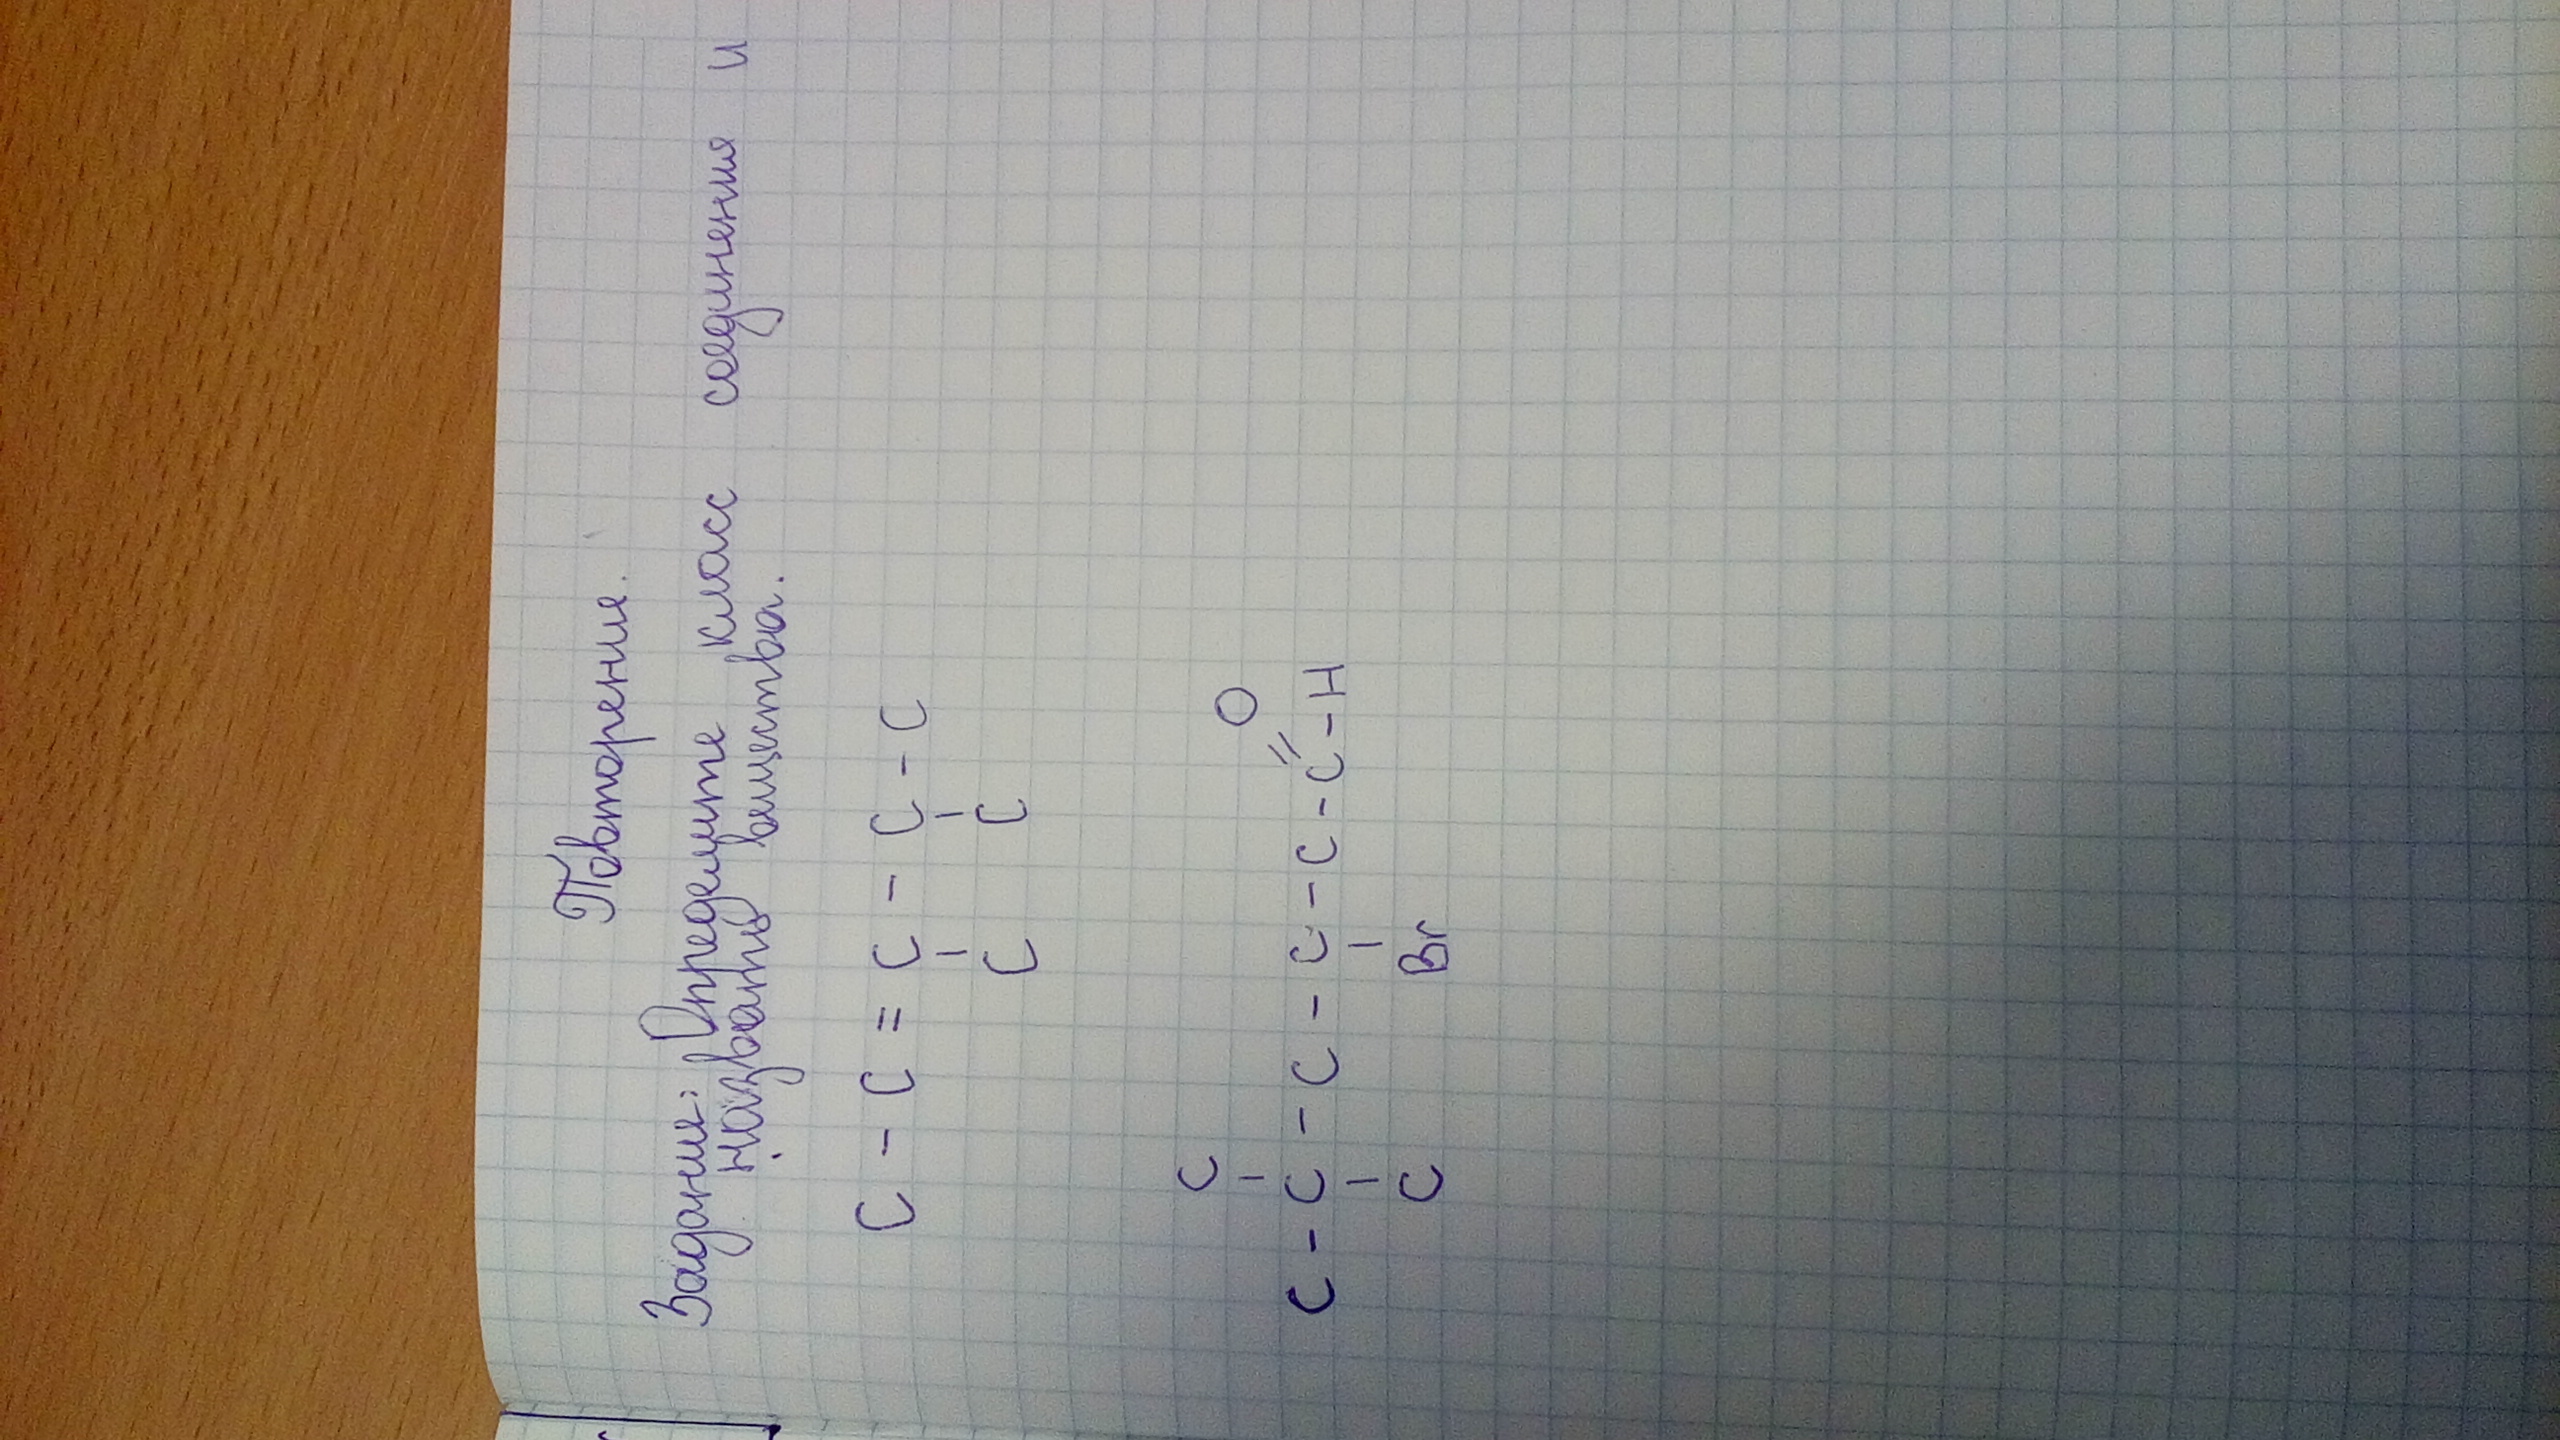 Повторение.
Задание: Определите класс соединения и
назвать вещества.
C - C = C - C - C
C C
C O
C - C - C - C - C - C - H
C Br